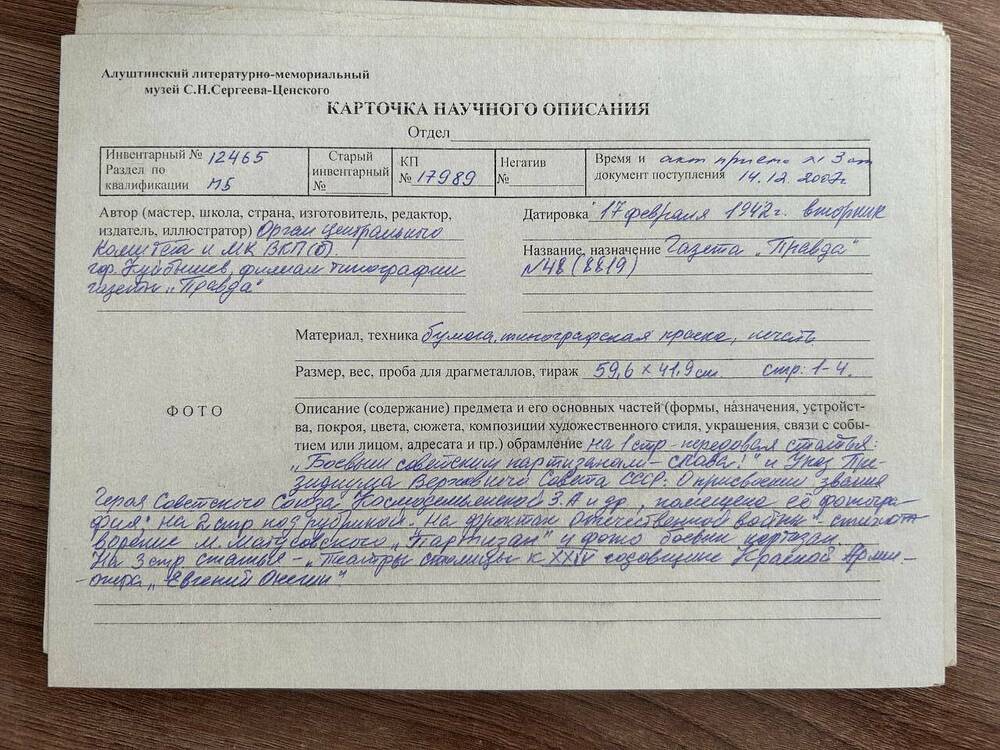 Алуштинский литературно-мемориальный
музей С.Н.Сергеева-Ценского
КАРТОЧКА НАУЧНОГО ОПИСАНИЯ
Отдел
Инвентарный № 12465
Раздел по
квалификации МБ
Старый
инвентарный
№
КП
№ 17989
Негатив
№
Время и акт приема № 3 от
документ поступления 14.12.2007г.
Автор (мастер, школа, страна, изготовитель, редактор,
издатель, иллюстратор) Орган Центрального
Комитета и МК ВКП(б).
гор. Куйбышев, филиал типографии
газеты „Правда"
Датировка 17 февраля 1942г. вторник
Название, назначение Газета „Правда"
№48 (8819)
Материал, техника бумага, типографская краска, печать.
Размер, вес, проба для драгметаллов, тираж 59,6 × 41,9 см. стр: 1-4.
ФОТО
Описание (содержание) предмета и его основных частей (формы, назначения, устройст-
ва, покроя, цвета, сюжета, композиции художественного стиля, украшения, связи с собы-
тием или лицом, адресата и пр.) обрамление на 1 стр - передовая статья:
„Боевым советским партизанам - слава!" и Указ Пре-
зидиума Верховного Совета СССР: О присвоении звания
Героя Советского Союза Космодемьянской З.А и др, помещена её фотогра-
фия; на 2 стр под рубрикой: На фронтах Отечественной войны - стихот-
ворение М. Матусовского „Партизан" и фото боевых партизан.
На 3 стр статья - „Театры столицы к XXIV годовщине Красной Армии -
опера „Евгений Онегин"